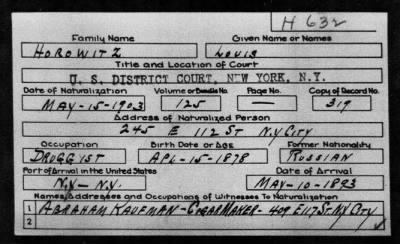 H 632
Family Name Given Name or Names
HOROWITZ LOUIS
Title and Location of Court
U. S. DISTRICT COURT, NEW YORK, N.Y.
Date of Naturalization Volume or Bundle No. Page No. Copy of Record No.
MAY-15-1903 125 — 319
Address of Naturalized Person
245 E 112 ST N.Y CITY
Occupation Birth Date or Age Former Nationality
DRUGGIST APL-15-1878 RUSSIAN
Port of Arrival in the United States Date of Arrival
N.Y-N.Y. MAY-10-1893
Names, Addresses and Occupations of Witnesses To Naturalization
1 ABRAHAM KAUFMAN-CIGARMAKER-409 E 117 ST NY CITY
2